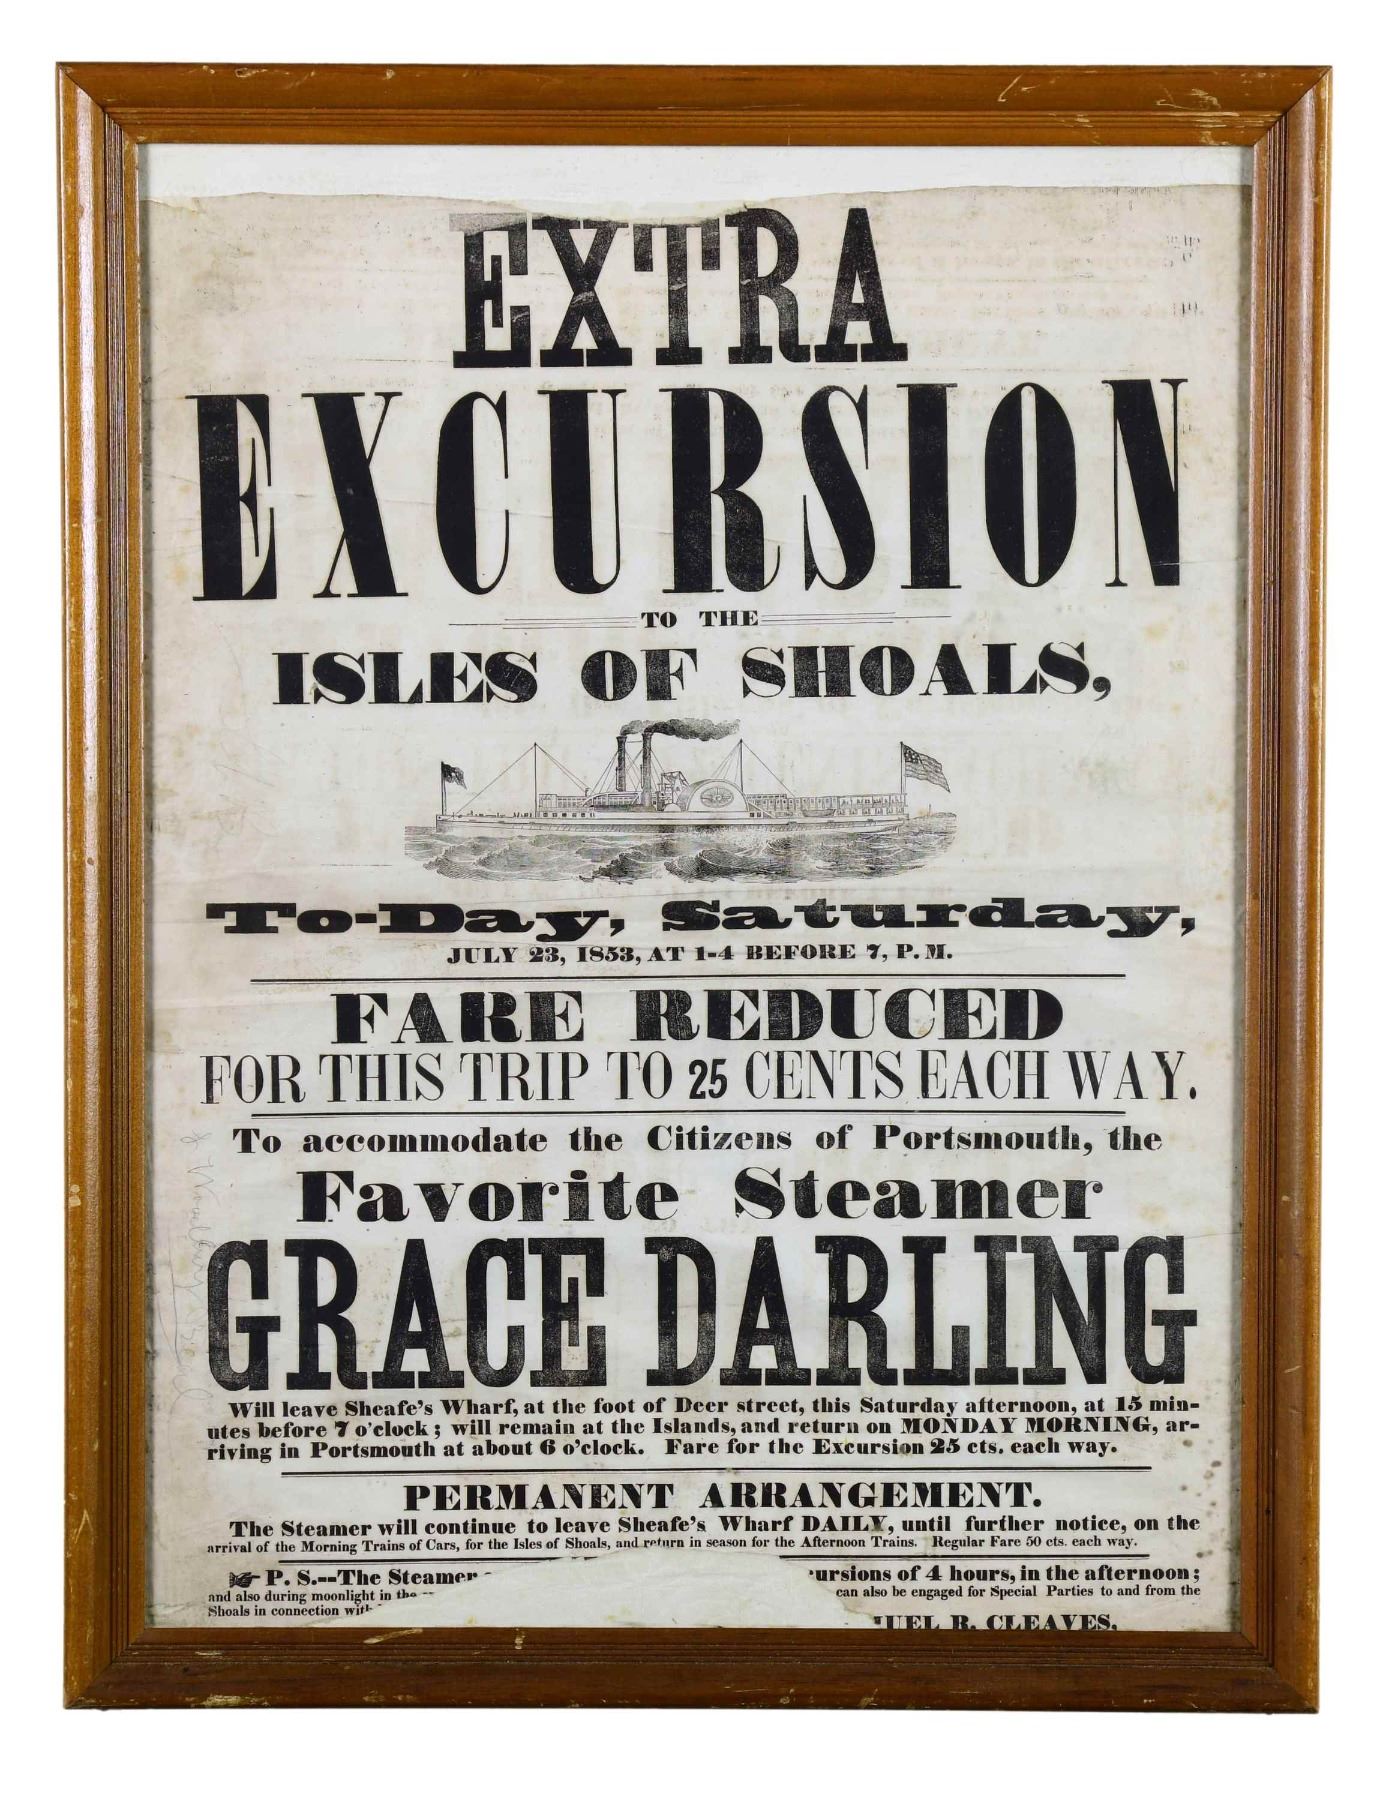 EXTRA
EXCURSION
TO THE
ISLES OF SHOALS,
To-Day, Saturday,
JULY 23, 1853, AT 1-4 BEFORE 7, P. M.
FARE REDUCED
FOR THIS TRIP TO 25 CENTS EACH WAY.
To accommodate the Citizens of Portsmouth, the
Favorite Steamer
GRACE DARLING
Will leave Sheafe's Wharf, at the foot of Deer street, this Saturday afternoon, at 15 min-
utes before 7 o'clock; will remain at the Islands, and return on MONDAY MORNING, ar-
riving in Portsmouth at about 6 o'clock. Fare for the Excursion 25 cts. each way.
PERMANENT ARRANGEMENT.
The Steamer will continue to leave Sheafe's Wharf DAILY, until further notice, on the
arrival of the Morning Trains of Cars, for the Isles of Shoals, and return in season for the Afternoon Trains. Regular Fare 50 cts. each way.
☞ P. S.--The Steamer ursions of 4 hours, in the afternoon;
and also during moonlight in the can also be engaged for Special Parties to and from the
Shoals in connection with
UEL R. CLEAVES,